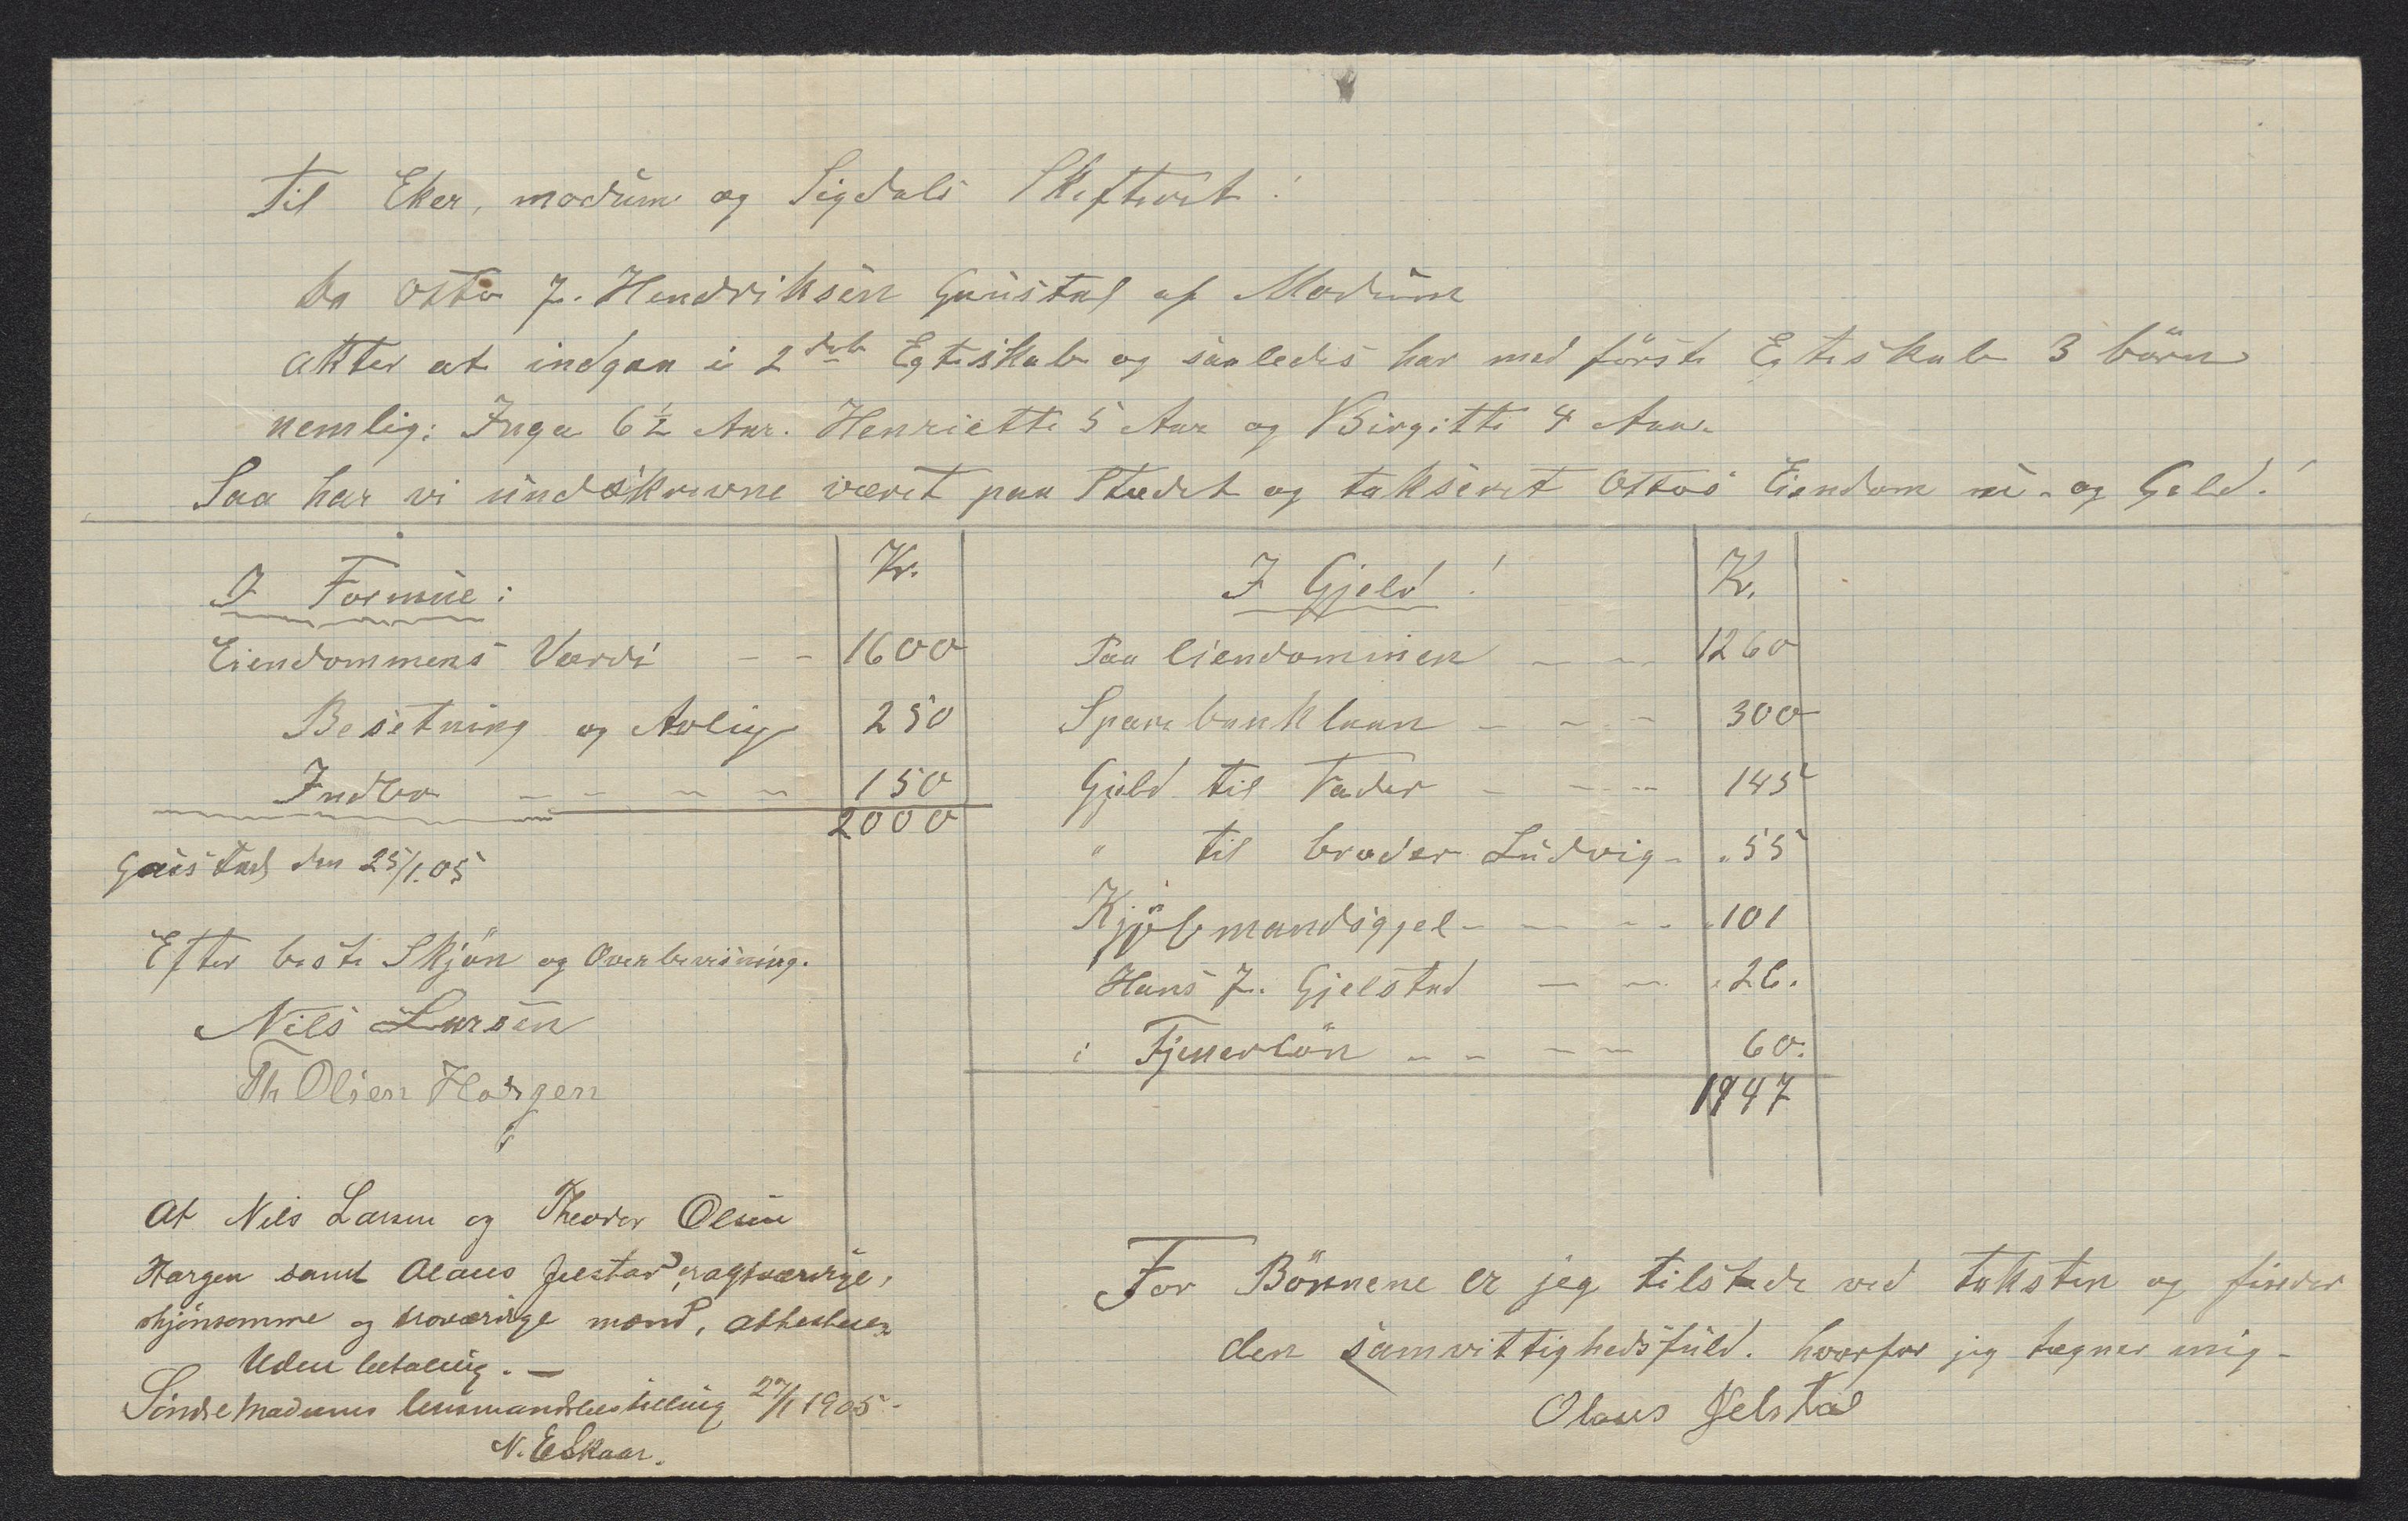 Til Eker, modum og Sigdals Skifteret!
Da Otto J. Hendriksen Gaustad af Modum
akter at indgaa i 2det Egteskab og saaledes har med förste Egteskab 3 börn
nemlig: Inga 6½ Aar. Henriette 5 Aar og Birgitte 4 Aar.
Saa har vi undskrevne været paa Stedet og takseret Ottos Eiendom og Geld!
I Formue:
Kr.
Eiendommens Værdi - - 1600
Besetning og Avling 250
Indbo - - - - 150
2000
Gaustad den 25/1.05
Efter beste Skjön og Overbevisning.
Nils Larsen
Th Olsen Horgen
At Nils Larsen og Theodor Olsen
Horgen samt Olaus Jelstad er agtværdige,
skjönsomme og troværdige mænd, attesteres
Uden betaling. -
Söndre Modums lensmandsbestilling 27/1 1905.
N. E Skaar.
I Gjeld!
Kr.
Paa Eiendommen - - - 1260
Sparebanklaan - - - 300
Gjeld til Fader - - - 145
" til broder Ludvig - 55
Kjöbmandsgjel - - - - 101
Hans J. Gjelstad - - 26.
i Tjenerlön - - - - 60.
1947
For Börnene er jeg tilstede ved taksten og finder
den samvittighedsfuld. hvorfor jeg tegner mig -
Olaus Jelstad